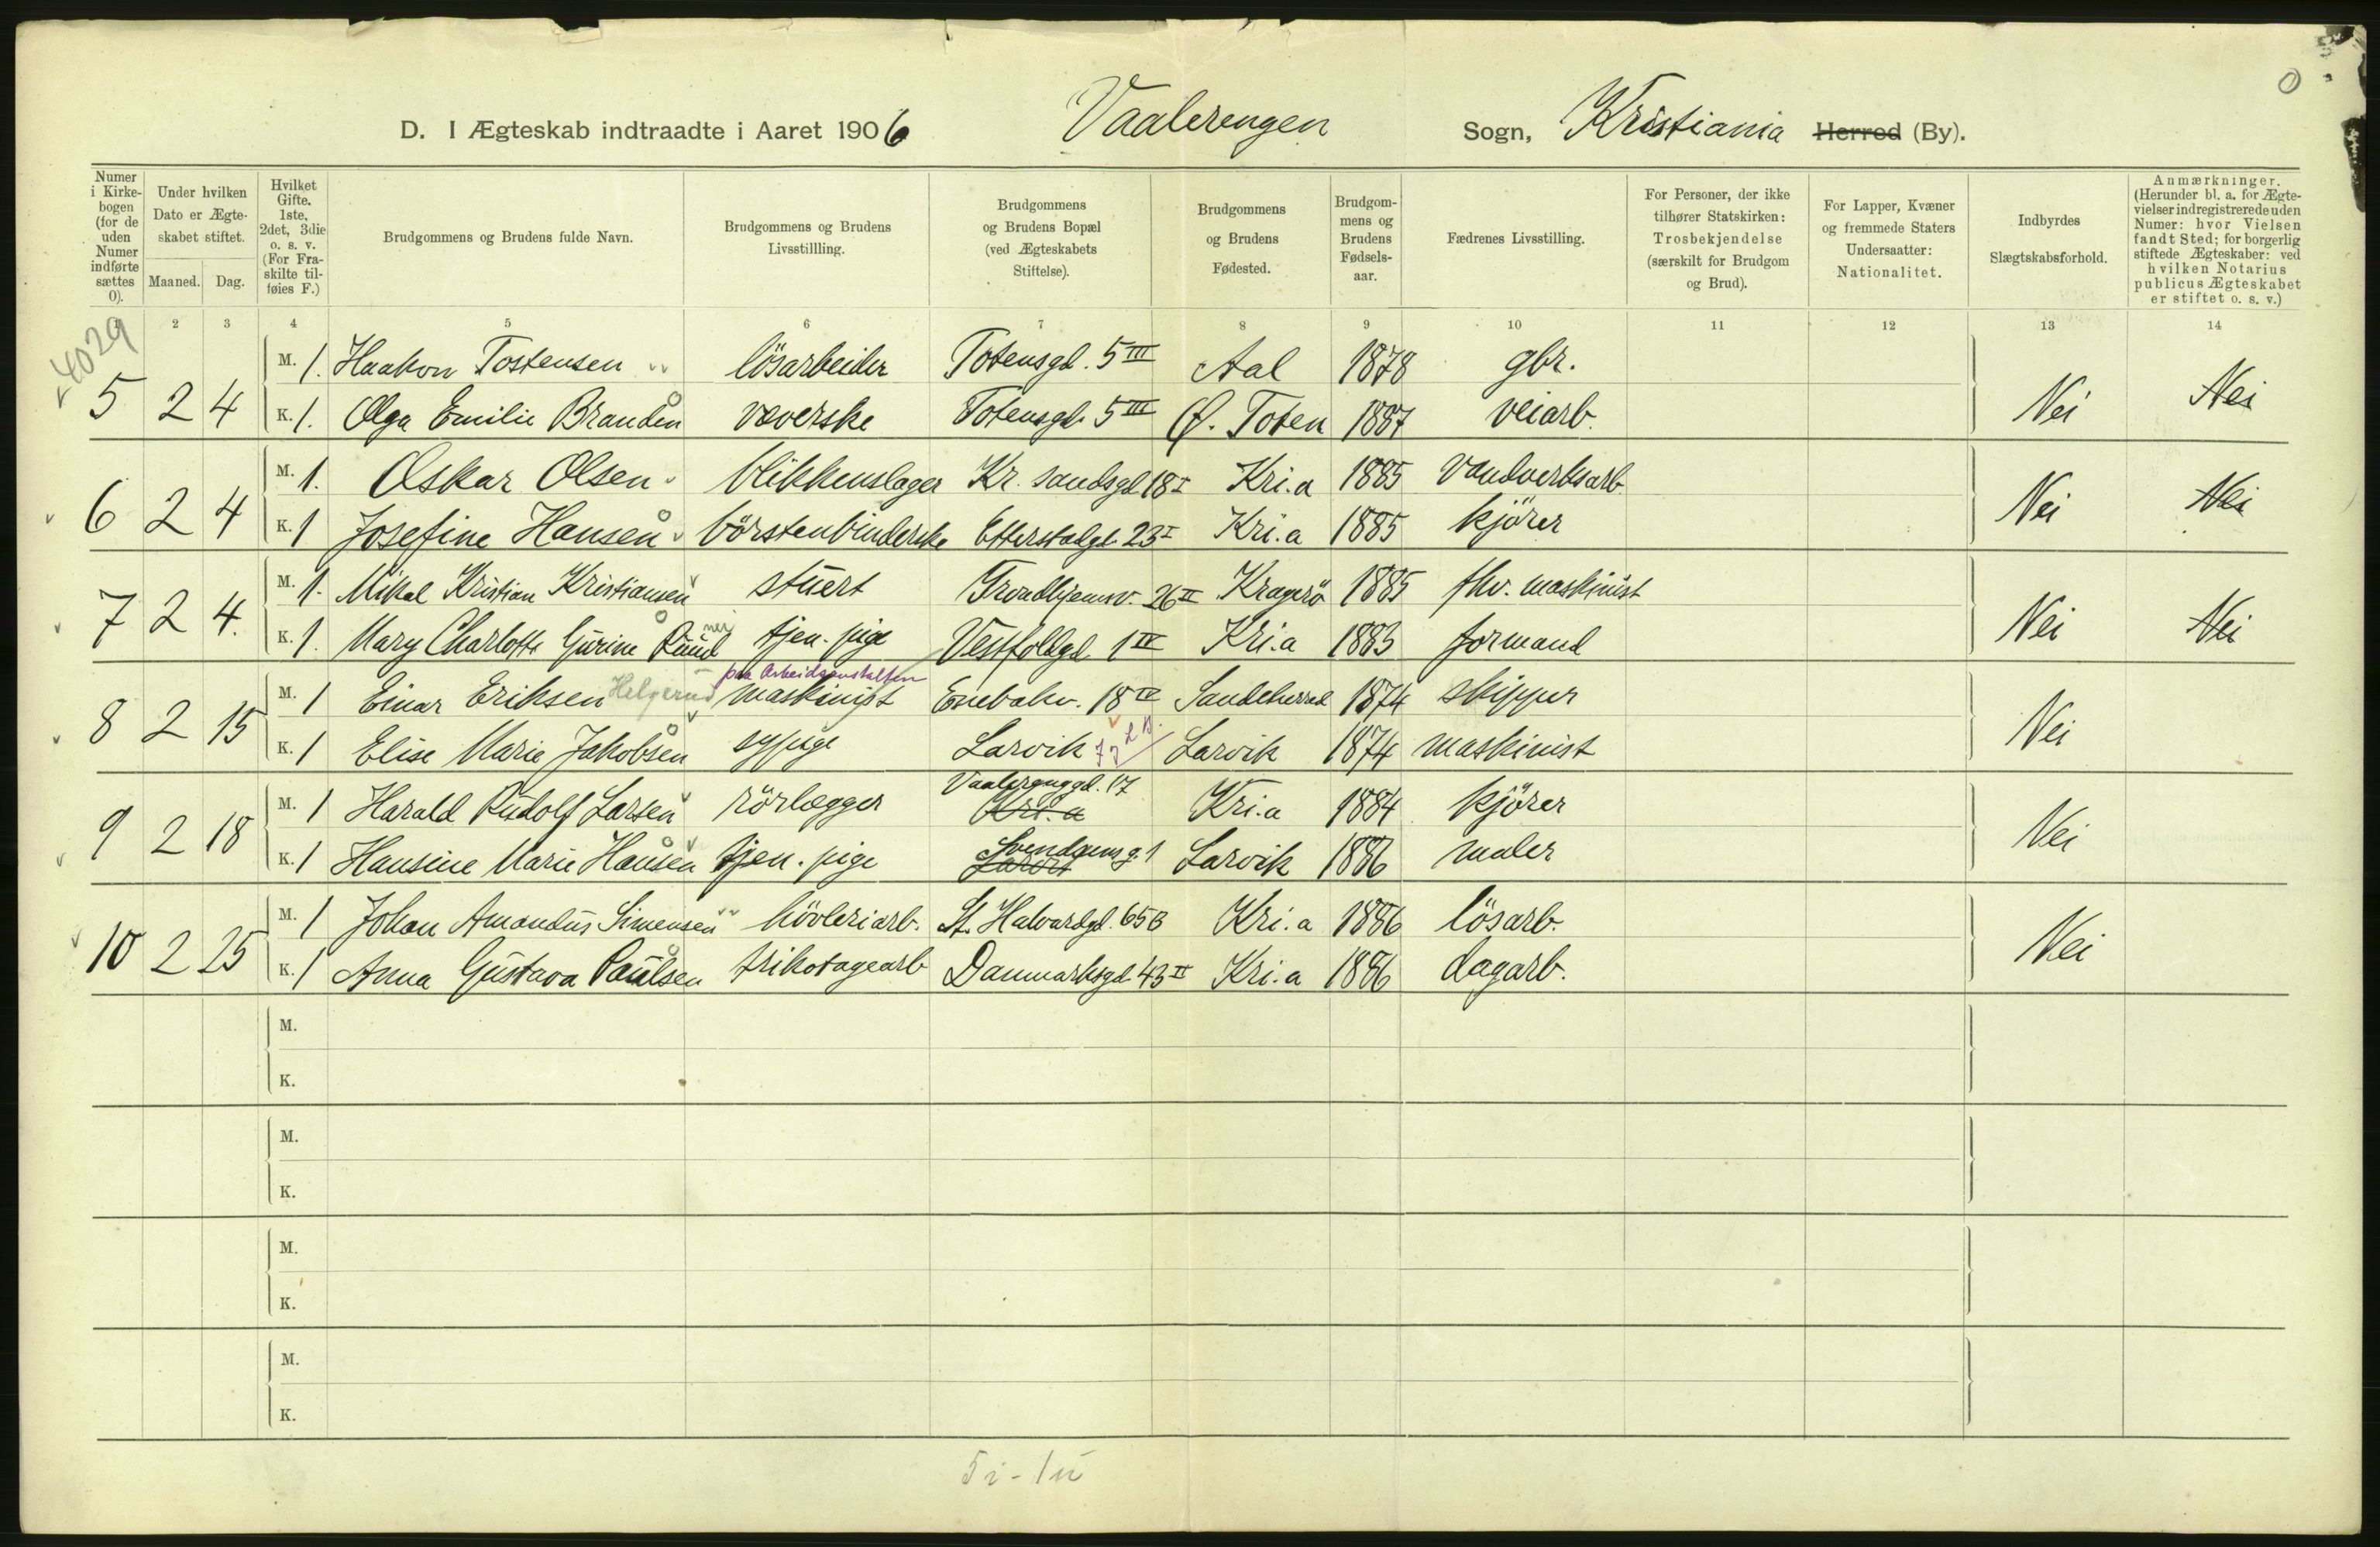 0
D. I Ægteskab indtraadte i Aaret 1906 Vaalerengen Sogn, Kristiania Herred (By).
Numer i Kirkebogen (for de uden Numer indførte sættes 0).
Under hvilken Dato er Ægteskabet stiftet.
Maaned. Dag.
Hvilket Gifte. 1ste, 2det, 3die o. s. v. (For Fraskilte tilføies F.)
Brudgommens og Brudens fulde Navn.
Brudgommens og Brudens Livsstillling.
Brudgommens og Brudens Bopæl (ved Ægteskabets Stiftelse).
Brudgommens og Brudens Fødested.
Brudgommens og Brudens Fødselsaar.
Fædrenes Livsstilling.
For Personer, der ikke tilhører Statskirken: Trosbekjendelse (særskilt for Brudgom og Brud).
For Lapper, Kvæner og fremmede Staters Undersaatter: Nationalitet.
Indbyrdes Slægtskabsforhold.
Anmærkninger. (Herunder bl. a. for Ægtevielser indregistrerede uden Numer: hvor Vielsen fandt Sted; for borgerlig stiftede Ægteskaber: ved hvilken Notarius publicus Ægteskabet er stiftet o. s. v.)
1 2 3 4 5 6 7 8 9 10 11 12 13 14
4029
M. 1. Haakon Tostensen lösarbeider Totensgd. 5 III Aal 1878 gbr.
5 2 4 Nei Nei
K. 1. Olga Emilie Branden væverske Totensgd. 5 III Ø. Toten 1887 veiarb.
M. 1. Oskar Olsen blikkenslager Kr.sandsgd 18 I Kri.a 1885 vandverksarb.
6 2 4 Nei Nei
K. 1 Josefine Hansen börstenbinderske Etterstadgd. 23 I Kri.a 1885 kjörer
M. 1. Mikal Kristian Kristiansen stuert Trondhjemsv. 26 II Kragerö 1885 fhv. maskinist
7 2 4. Nei Nei
K. 1. Mary Charlotte Gurine Ruud tjen. pige Vestfoldgd. 1 IV Kri.a 1883 formand
paa Arbeidsanstalten
M. 1 Einar Eriksen Helgerud maskinist Enebakv. 18 IV Sandeherred 1874 skipper
8 2 15 Nei
K. 1 Elise Marie Jakobsen sypige Larvik Larvik 1874 maskinist
Vaalerenggd. 17
M. 1 Harald Rudolf Larsen rörlægger Kri.a Kri.a 1884 kjörer
9 2 18 Nei
Svendgens g. 1
K. 1 Hansine Marie Hansen tjen. pige Larvik Larvik 1886 maler
M. 1 Johan Amandus Simensen hövleriarb. St. Halvardgd. 65B Kri.a 1886 lösarb.
10 2 25 Nei
K. 1 Anna Gustava Paulsen trikotagearb Danmarksgd. 43 II Kri.a 1886 dagarb.
M.
K.
M.
K.
M.
K.
M.
K.